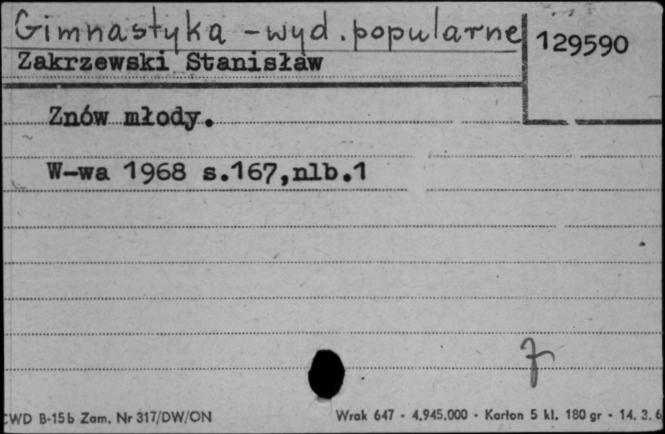 Gimnastyka - wyd. popularne
129590
Zakrzewski Stanisław
Znów młody.
W-wa 1968 s.167,nlb.1
7
CWD B-15b Zam. Nr 317/DW/ON
Wrak 647 - 4.945.000 - Karton 5 kl. 180 gr - 14. 3. 6